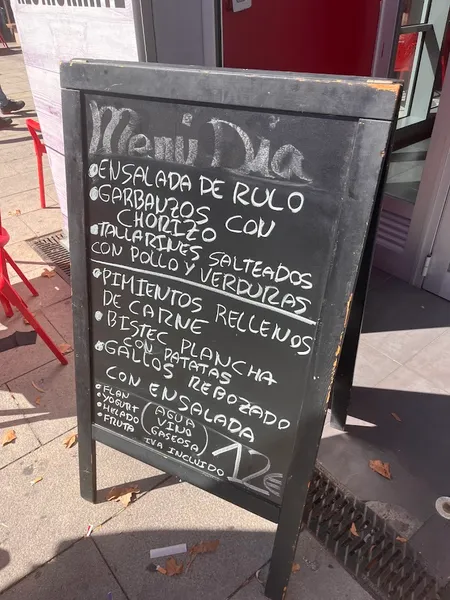 Menú Dia
•ENSALADA DE RULO
•GARBANZOS CON
CHORIZO
•TALLARINES SALTEADOS
CON POLLO Y VERDURAS
•PIMIENTOS RELLENOS
DE CARNE
•BISTEC PLANCHA
CON PATATAS
•GALLOS REBOZADO
CON ENSALADA
•FLAN
•YOGURT
•HELADO
•FRUTA
(AGUA
VINO
GASEOSA)
IVA INCLUIDO
12€